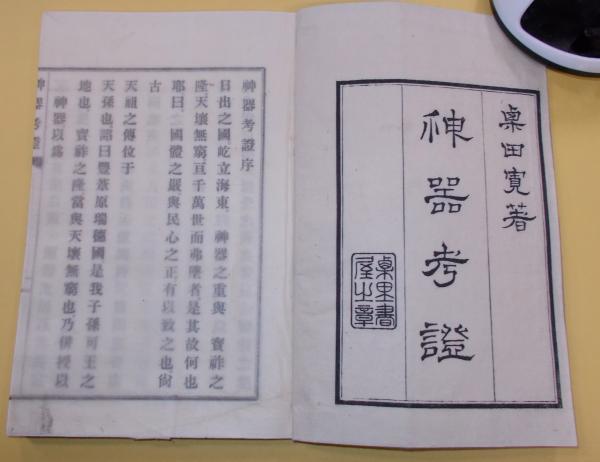 栗田寛著
神器考證
神器考證序
日出之國屹立海東神器之重與寶祚之
隆天壤無窮亘千萬世而弗墜者是其故何也
耶曰之國體之嚴與民心之正有以致之也尙
古
天祖之傳位于
天孫也詔曰豐葦原瑞穗國是我子孫可王之
地也寶祚之隆當與天壤無窮也乃併授以
神器以爲
神器考證